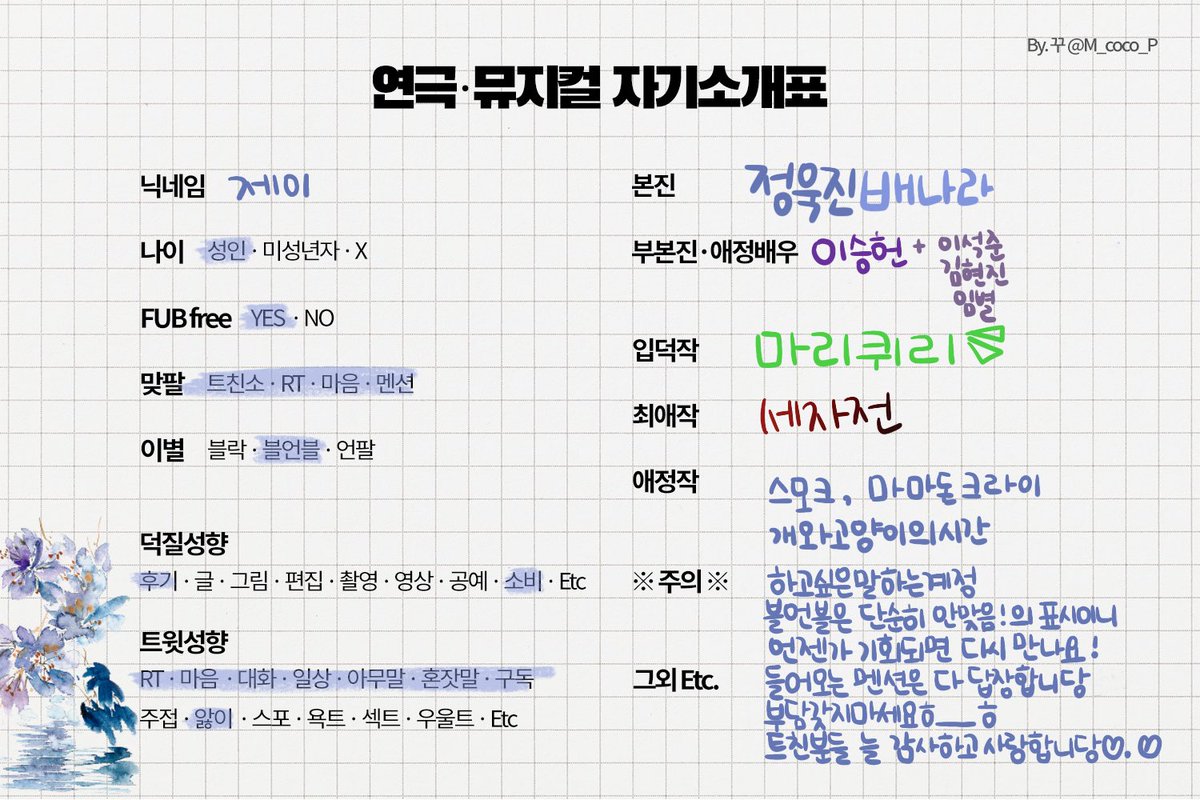 By. 꾸 @M_coco_P
연극·뮤지컬 자기소개표
닉네임 제미
나이 성인 · 미성년자 · X
FUB free YES · NO
맞팔 트친소 · RT · 마음 · 멘션
이별 블락 · 블언블 · 언팔
덕질성향
후기 · 글 · 그림 · 편집 · 촬영 · 영상 · 공예 · 소비 · Etc
트윗성향
RT · 마음 · 대화 · 일상 · 아무말 · 혼잣말 · 구독
주접 · 앓이 · 스포 · 욕트 · 섹트 · 우울트 · Etc
본진 정욱진 배나라
부본진·애정배우 이승헌 + 이석준
김현진
임별
입덕작 마리퀴리
최애작 세자전
애정작 스모크, 마마돈크라이
개와고양이의시간
※ 주의 ※ 하고싶은말하는계정
블언블은 단순히 안맞음!의 표시이니
언젠가 기회되면 다시 만나요!
그외 Etc. 들어오는 멘션은 다 답장합니당
부담갖지마세요ㅎ__ㅎ
트친분들 늘 감사하고 사랑합니당♡.♡